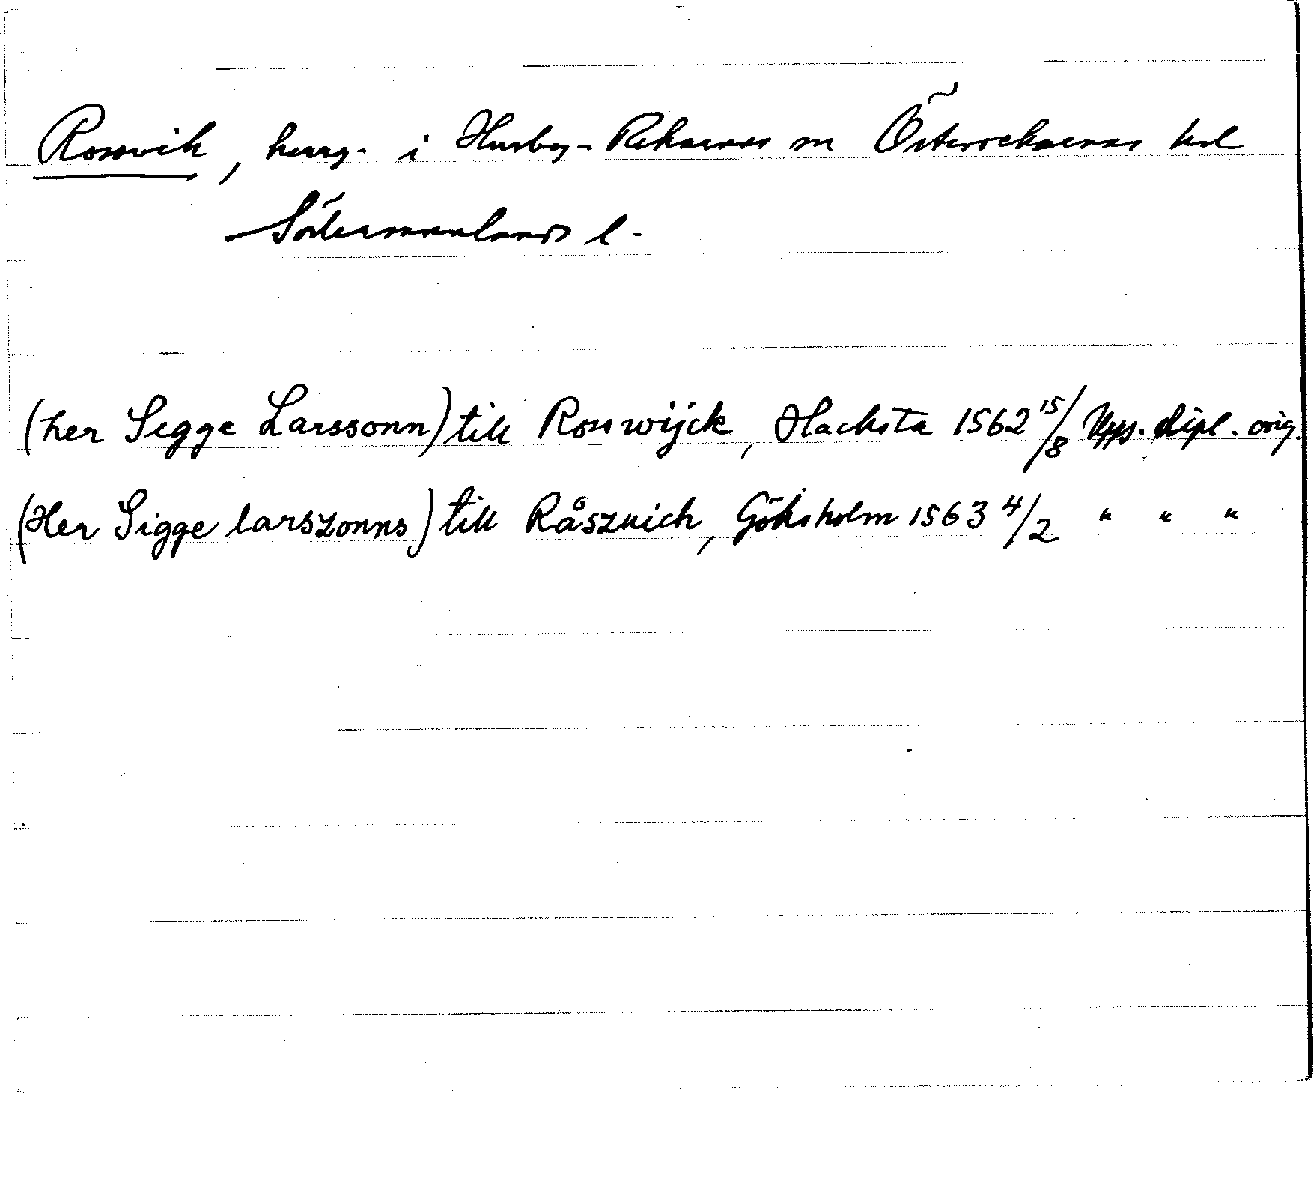 Rossvik, herrg. i Husby-Rekarnes sn Österrekarnes hd
Södermanlands l.
(her Segge Larssonn) till Roswijck, Hacksta 1562 15/8 Upps. dipl. orig.
(Her Sigge larszonns) till Råszuich, Göksholm 1563 4/2 " " "